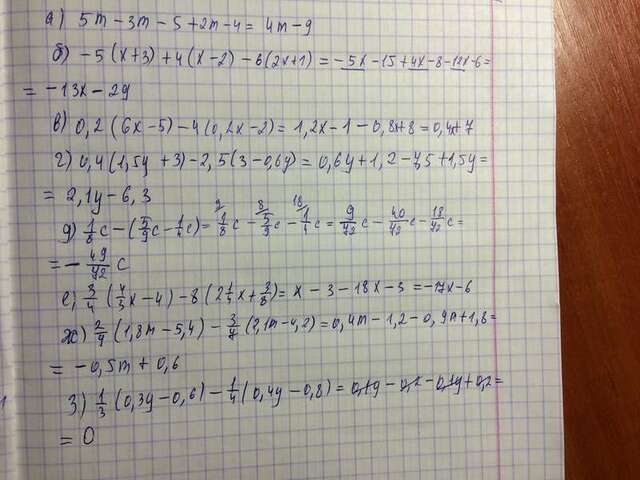 а) 5m - 3m - 5 + 2m - 4 = 4m - 9
б) -5(x+3) + 4(x-2) - 6(2x+1) = -5x - 15 + 4x - 8 - 12x - 6 =
= -13x - 29
в) 0,2(6x-5) - 4(0,2x-2) = 1,2x - 1 - 0,8x + 8 = 0,4x + 7
г) 0,4(1,5y + 3) - 2,5(3 - 0,6y) = 0,6y + 1,2 - 7,5 + 1,5y =
= 2,1y - 6,3
д) 1/8 c - (5/9 c - 1/4 c) = 9/ 1/8 c - 8/ 5/9 c - 18/ 1/4 c = 9/72 c - 40/72 c - 18/72 c =
= - 49/72 c
е) 3/4 (4/3 x - 4) - 8(2 1/4 x + 3/8) = x - 3 - 18x - 3 = -17x - 6
ж) 2/9 (1,8m - 5,4) - 3/7 (2,1m - 4,2) = 0,4m - 1,2 - 0,9m + 1,8 =
= -0,5m + 0,6
з) 1/3 (0,3y - 0,6) - 1/4 (0,4y - 0,8) = 0,1y - 0,2 - 0,1y + 0,2 =
= 0